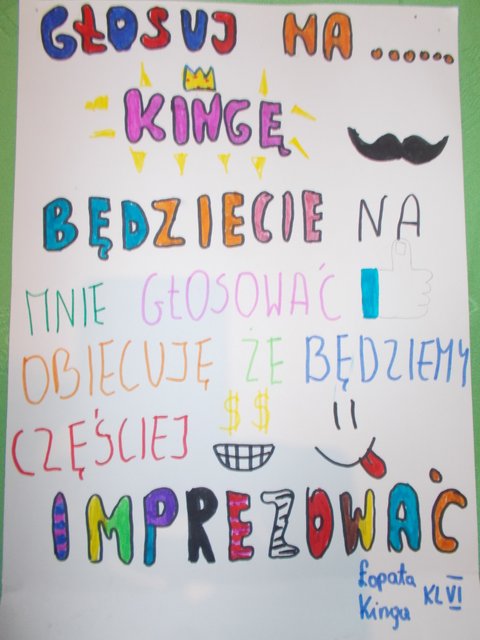 GŁOSUJ NA ......
KINGĘ
BĘDZIECIE NA
MNIE GŁOSOWAĆ
OBIECUJĘ ŻE BĘDZIEMY
CZĘŚCIEJ $ $
IMPREZOWAĆ
Łopata
Kinga KL VI